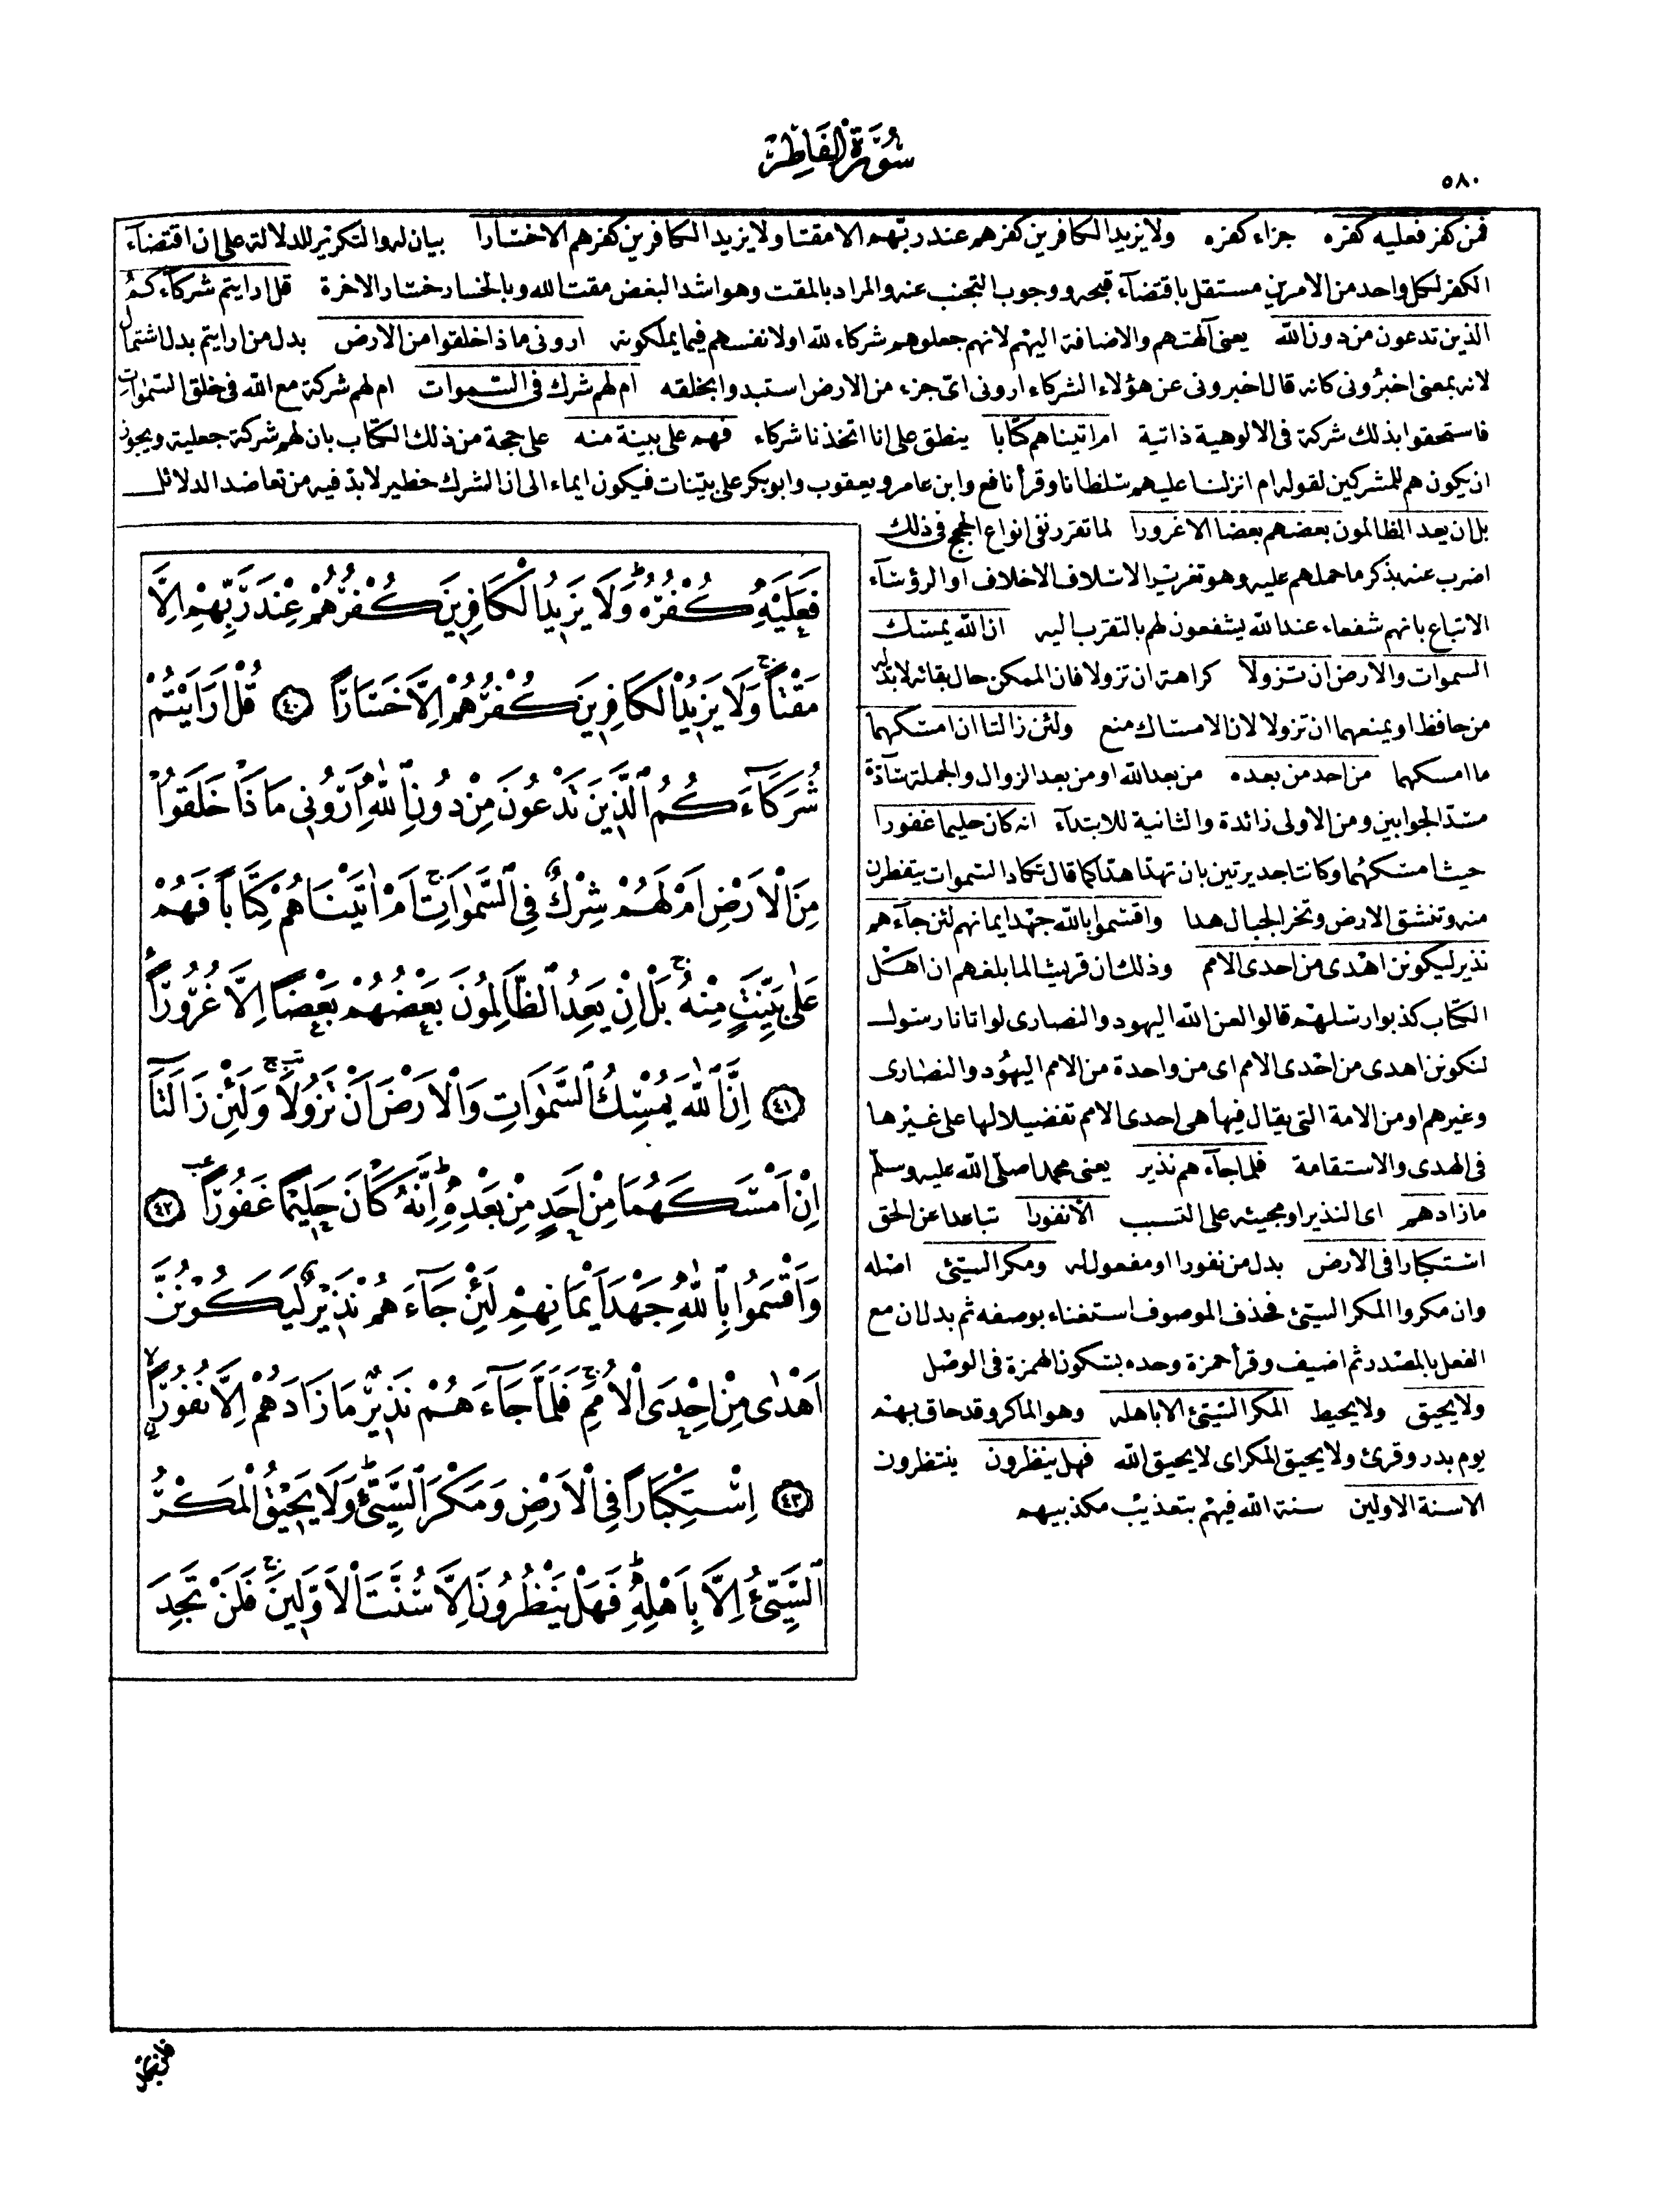 سُورَةُ الفَاطِر
٥٨٠
فمن كفر فعليه كفره جزاء كفره ولا يزيد الكافرين كفرهم عند ربهم الا مقتا ولا يزيد الكافرين كفرهم الا خسارا بيان له والتكرير للدلالة على ان اقتضآء
الكفر لكل واحد من الامرين مستقل باقتضآء قبحه ووجوب التجنب عنه والمراد بالمقت وهو اشد البغض مقت الله وبالخسار خسار الاخرة قل ارايتم شركآءكم
الذين تدعون من دون الله يعنى آلهتهم والاضافة اليهم لانهم جعلوهم شركاء لله او لانفسهم فيما يملكونه ارونى ماذا خلقوا من الارض بدل من ارايتم بدل اشتمال
لانه بمعنى اخبرونى كانه قال اخبرونى عن هؤلاء الشركاء ارونى اىّ جزء من الارض استبدوا بخلقه ام لهم شرك فى السموات ام لهم شركة مع الله فى خلق السموات
فاستحقوا بذلك شركة فى الالوهية ذاتية ام اتيناهم كتابا ينطق على انا اتخذنا شركاء فهم على بينة منه على حجة من ذلك الكتاب بان لهم شركة جعلية ويجوز
ان يكون هم للمشركين لقوله ام انزلنا عليهم سلطانا وقرأ نافع وابن عامر ويعقوب وابو بكر على بينات فيكون ايماء الى ان الشرك خطير لا بدّ فيه من تعاضد الدلائل
بل ان يعد الظالمون بعضهم بعضا الا غرورا لما تقرر نفى انواع الحجج فى ذلك
اضرب عنه بذكر ما حملهم عليه وهو تغرير الاسلاف الاخلاف او الرؤسآء
الاتباع بانهم شفعاء عند الله يشفعون لهم بالتقرب اليه ان الله يمسك
السموات والارض ان تزولا كراهة ان تزولا فان الممكن حال بقائه لا بدّ له
من حافظ او يمنعهما ان تزولا لان الامساك منع ولئن زالتا ان امسكهما
ما امسكهما من احد من بعده من بعد الله او من بعد الزوال والجملة سآدّة
مسدّ الجوابين ومن الاولى زائدة والثانية للابتدآء انه كان حليما غفورا
حيث امسكهما وكانتا جديرتين بان تهدّا هدّا كما قال تكاد السموات يتفطرن
منه وتنشق الارض وتخر الجبال هدا واقسموا بالله جهد ايمانهم لئن جآءهم
نذير ليكونن اهدى من احدى الامم وذلك ان قريشا لما بلغهم ان اهل
الكتاب كذبوا رسلهم قالوا لعن الله اليهود والنصارى لو اتانا رسول
لنكونن اهدى من احدى الامم اى من واحدة من الامم اليهود والنصارى
وغيرهم او من الامة التى يقال فيها هى احدى الامم تفضيلا لها على غيرها
فى الهدى والاستقامة فلما جآءهم نذير يعنى محمدا صلّى الله عليه وسلّم
ما زادهم اى النذير او مجيئه على التسبب الا نفورا تباعدا عن الحق
استكبارا فى الارض بدل من نفورا او مفعول له ومكر السيّئ اصله
وان مكروا المكر السيّئ فحذف الموصوف استغناء بوصفه ثم بدل ان مع
الفعل بالمصدر ثم اضيف وقرأ حمزة وحده بسكون الهمزة فى الوصل
ولا يحيق ولا يحيط المكر السيّئ الا باهله وهو الماكر وقد حاق بهم
يوم بدر وقرئ ولا يحيق المكر اى لا يحيق الله فهل ينظرون ينتظرون
الا سنة الاولين سنة الله فيهم بتعذيب مكذبيهم
فَعَلَيْهِ كُفْرُهُ وَلَا يَزِيدُ الْكَافِرِينَ كُفْرُهُمْ عِنْدَ رَبِّهِمْ اِلَّا
مَقْتًا وَلَا يَزِيدُ الْكَافِرِينَ كُفْرُهُمْ اِلَّا خَسَارًا ﴿٤٠﴾ قُلْ اَرَاَيْتُمْ
شُرَكَآءَكُمُ الَّذِينَ تَدْعُونَ مِنْ دُونِ اللّٰهِ اَرُونِى مَاذَا خَلَقُوا
مِنَ الْاَرْضِ اَمْ لَهُمْ شِرْكٌ فِى السَّمٰوَاتِ اَمْ اٰتَيْنَاهُمْ كِتَابًا فَهُمْ
عَلٰى بَيِّنَتٍ مِنْهُ بَلْ اِنْ يَعِدُ الظَّالِمُونَ بَعْضُهُمْ بَعْضًا اِلَّا غُرُورًا
﴿٤١﴾ اِنَّ اللّٰهَ يُمْسِكُ السَّمٰوَاتِ وَالْاَرْضَ اَنْ تَزُولَا وَلَئِنْ زَالَتَآ
اِنْ اَمْسَكَهُمَا مِنْ اَحَدٍ مِنْ بَعْدِهِ اِنَّهُ كَانَ حَلِيمًا غَفُورًا ﴿٤٢﴾
وَاَقْسَمُوا بِاللّٰهِ جَهْدَ اَيْمَانِهِمْ لَئِنْ جَآءَهُمْ نَذِيرٌ لَيَكُونُنَّ
اَهْدٰى مِنْ اِحْدَى الْاُمَمِ فَلَمَّا جَآءَهُمْ نَذِيرٌ مَا زَادَهُمْ اِلَّا نُفُورًا
﴿٤٣﴾ اِسْتِكْبَارًا فِى الْاَرْضِ وَمَكْرَ السَّيِّئِ وَلَا يَحِيقُ الْمَكْرُ
السَّيِّئُ اِلَّا بِاَهْلِهِ فَهَلْ يَنْظُرُونَ اِلَّا سُنَّتَ الْاَوَّلِينَ فَلَنْ تَجِدَ